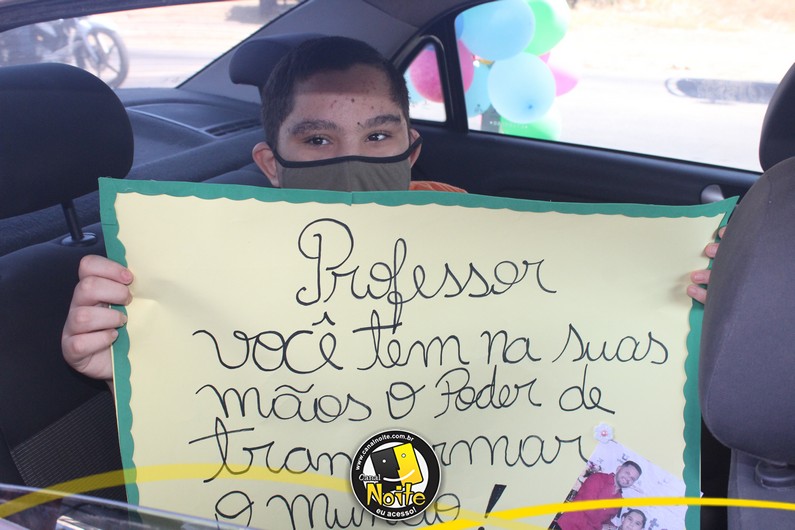 Professor
você tem na suas
mãos o Poder de
tran mar
o Mundo!
www.canalnoite.com.br
Canal
NOITE
eu acesso!